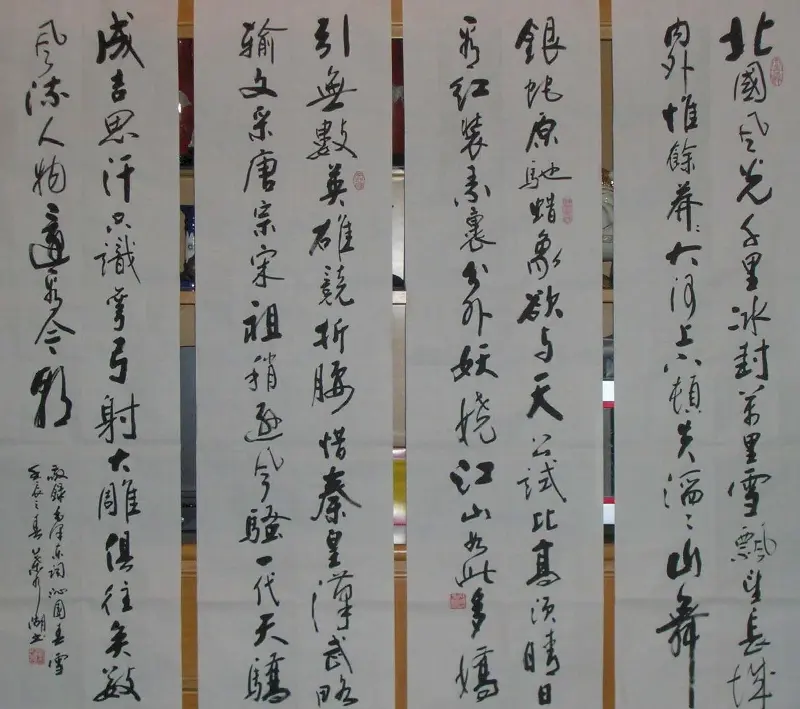 北國风光千里冰封萬里雪飄望長城
内外惟餘莽々大河上下頓失滔々山舞
銀蛇原馳蜡象欲与天公試比高須晴日
看红装素裹分外妖娆江山如此多嬌
引無數英雄競折腰惜秦皇漢武略
输文采唐宗宋祖稍遜风騷一代天驕
成吉思汗只識彎弓射大雕俱往矣數
风流人物還看今朝
敬録毛泽东词沁園春雪
壬辰之春